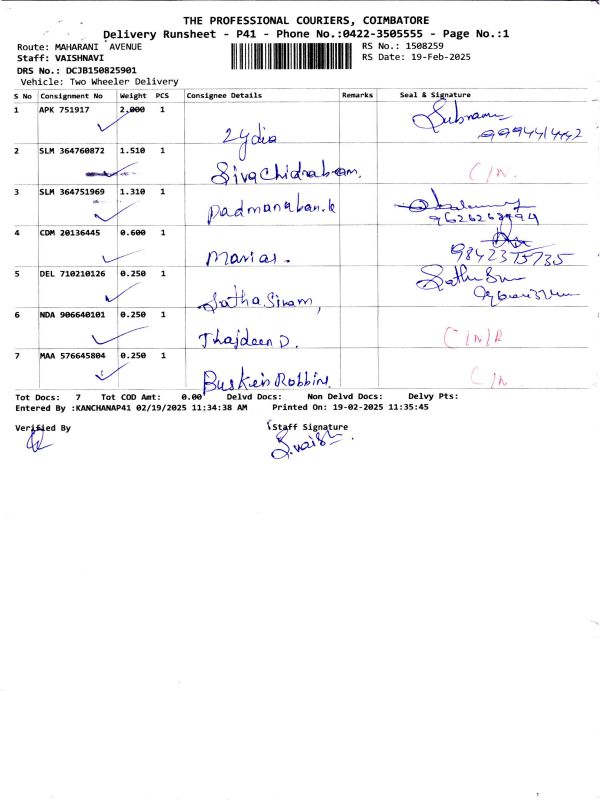 THE PROFESSIONAL COURIERS, COIMBATORE
Delivery Runsheet - P41 - Phone No.:0422-3505555 - Page No.:1
Route: MAHARANI AVENUE RS No.: 1508259
Staff: VAISHNAVI RS Date: 19-Feb-2025
DRS No.: DCJB150825901
Vehicle: Two Wheeler Delivery
S No Consignment No Weight PCS Consignee Details Remarks Seal & Signature
1 APK 751917 2.000 1
Lydia
2 SLM 364760872 1.510 1
Siva Chidrabam.
3 SLM 364751969 1.310 1
Padmanaban.k
4 CDM 20136445 0.600 1
9842375735
5 DEL 710210126 0.250 1
Satha Sivam,
6 NDA 906640101 0.250 1
Thajdeen D.
7 MAA 576645804 0.250 1
Buskein Robbins
Tot Docs: 7 Tot COD Amt: 0.00 Delvd Docs: Non Delvd Docs: Delvy Pts:
Entered By :KANCHANAP41 02/19/2025 11:34:38 AM Printed On: 19-02-2025 11:35:45
Verified By Staff Signature
S.vaish